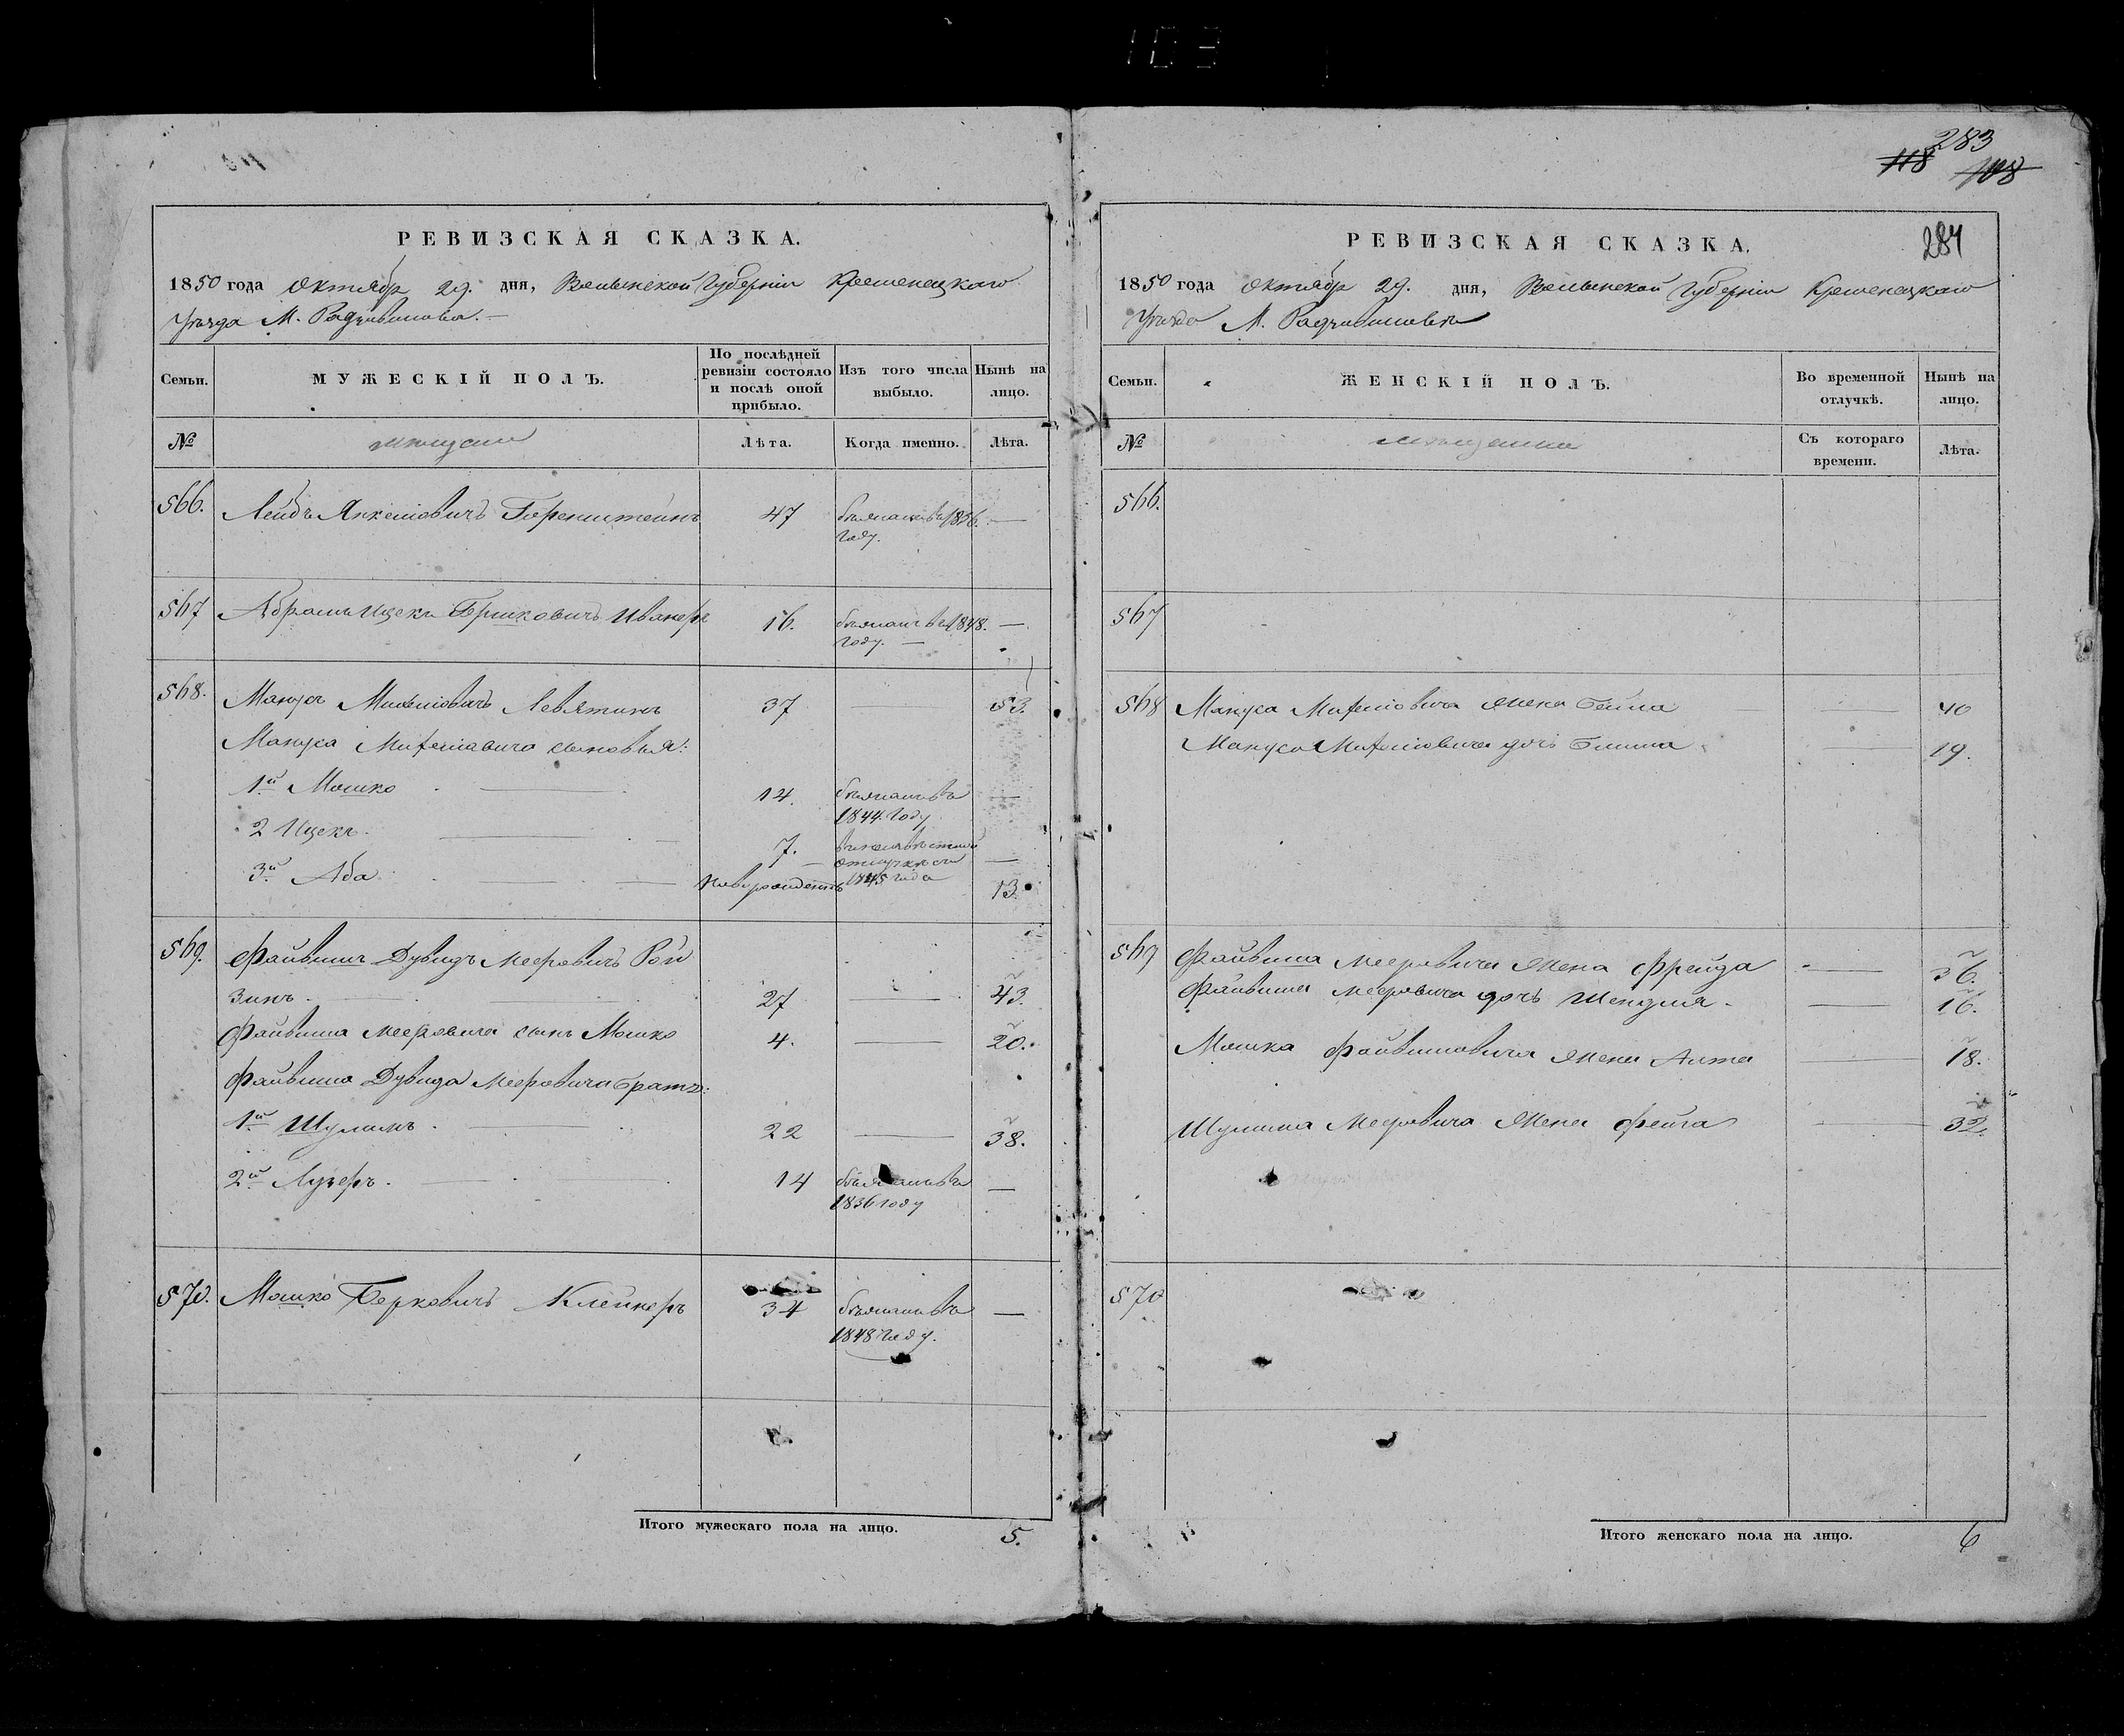 103
283
118 108
РЕВИЗСКАЯ СКАЗКА.
1850 года Октября 29. дня, Волынской Губерніи Кременецкаго
Уѣзда М. Радзивилова.
Семьи.
МУЖЕСКІЙ ПОЛЪ.
По послѣдней ревизіи состояло и послѣ оной прибыло.
Изъ того числа выбыло.
Нынѣ на лицо.
№ мѣщане Лѣта. Когда именно. Лѣта.
566. Лейбъ Янкелиовичъ Горенштейнъ 47 бѣжалъ въ 1836. —
году.
567 Абрамъ Ицекъ Бришковичъ 16. бѣжалъ въ 1848. —
году. —
568. Манусъ 37 — 53.
Мануса сыновья:
1й Мошко 14. бѣжалъ въ —
1844 году
2 Ицекъ 7. въ неизвѣстной
отлучкѣ съ —
3й Аба новорожденъ 1845 года 13.
569. Файвишъ Дувидъ Мееровичъ Рой
зинъ 27 — 43.
Файвиша Мееровича сынъ Мошко 4. — 20.
Файвиша Дувида Мееровича братья:
1й Шулимъ 22 — 38.
2й Лузеръ 14 бѣжалъ въ —
1836 году
570. Мошко Берковичъ Клейнеръ 34 бѣжалъ въ —
1848 году.
Итого мужескаго пола на лицо. 5.
РЕВИЗСКАЯ СКАЗКА. 284
1850 года Октября 29. дня, Волынской Губерніи Кременецкаго
Уѣзда М. Радзивилова
Семьи.
ЖЕНСКІЙ ПОЛЪ.
Во временной отлучкѣ.
Нынѣ на лицо.
№ мѣщанки Съ котораго времени. Лѣта.
566.
567
568 Мануса жена Бейла — 40
Мануса дочь — 19.
569 Файвиша Мееровича жена Фрейда — 36.
Файвиша Мееровича дочь Шендля — 16.
Мошка Файвишовича жена Алта — 18.
Шулима Мееровича жена Фейга — 32.
570
Итого женскаго пола на лицо. 6